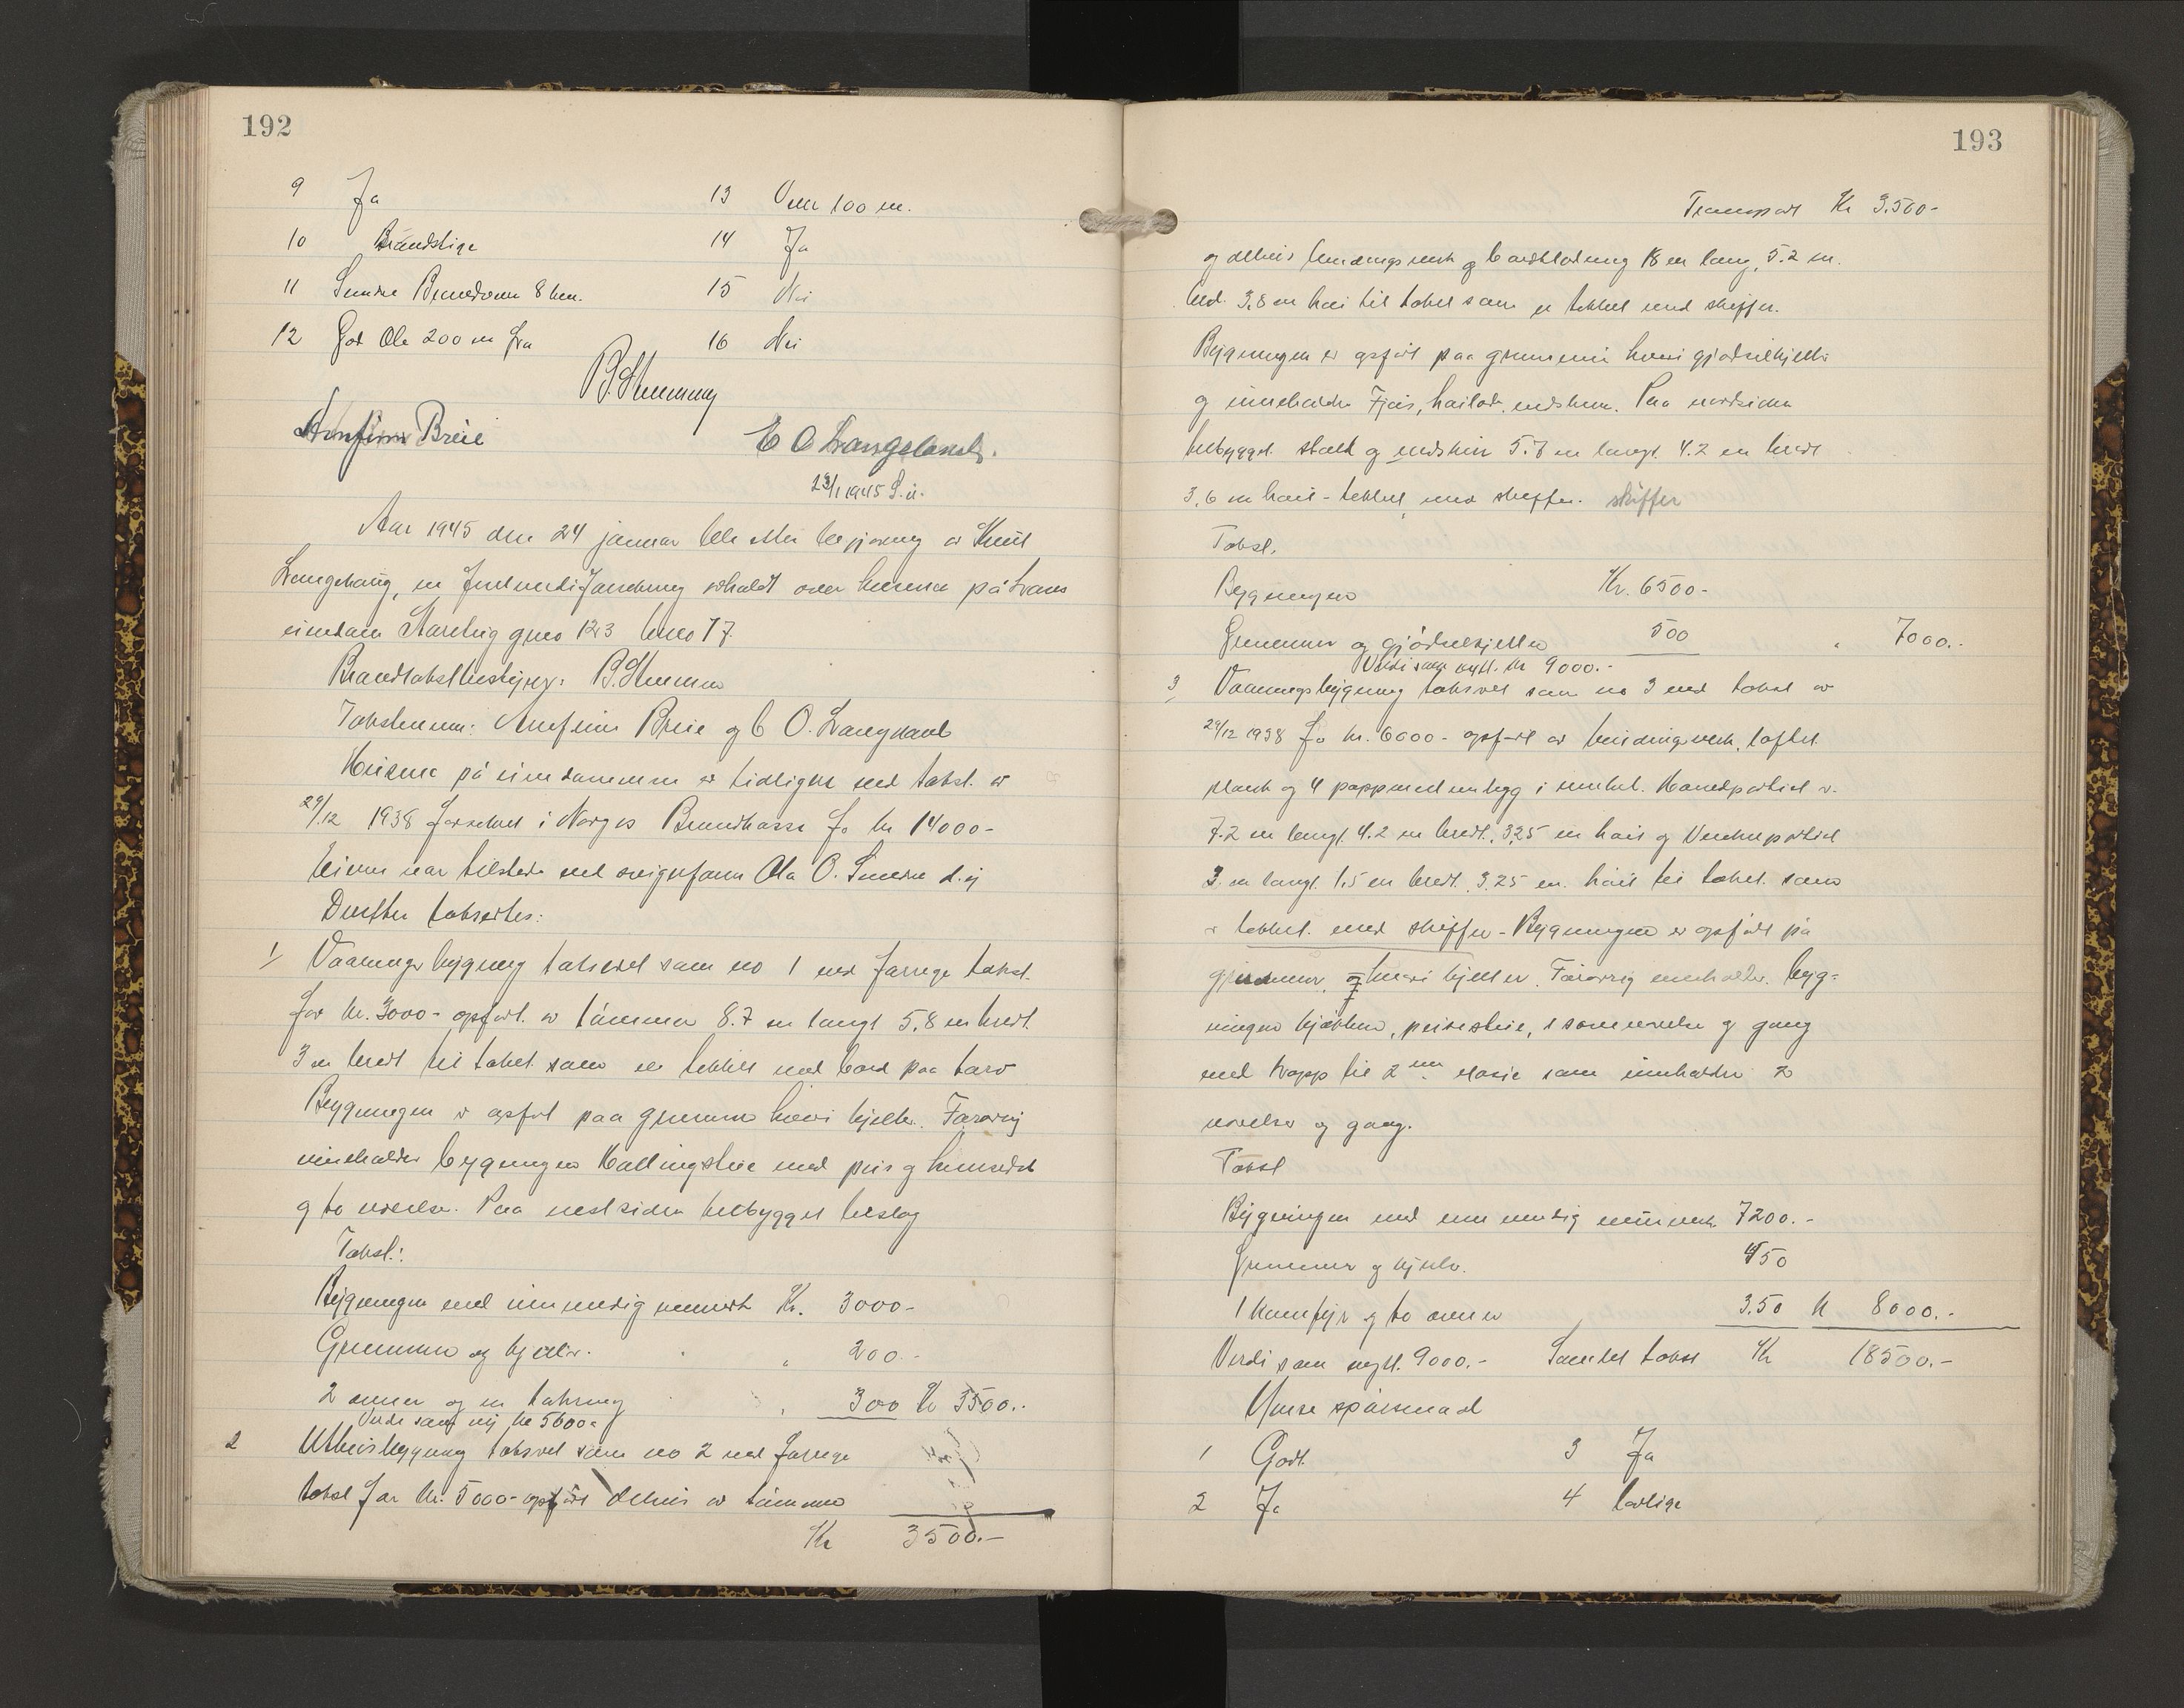 192
9 Ja 13 Over 100 m.
10 Brandstige 14 Ja
11 8 km. 15 Nei
12 God Ole 200 m fra 16 Nei
Arnfinn Breie E O Langeland
1945
Aar 1945 den 24 januar ble etter begjæring av Knut
Langehaug, en holdt over husene på
eiendom gno 123 bno 17
Brandtakstbestyrer:
Takstmenn: Arnfinn Breie og E O. Langeland
Husene på eiendommen er tidligere ved takst av
29/12 1938 i Norges Brandkasse for kr 14000-
Eieren var tilstede ved svigerfaren Ola O.
Derefter takseertes:
1/ Vaaningsbygning taksert som no 1 ved forrige takst
for kr. 3000- opført av tømmer 8.7 m langt 5,8 m bredt
3 m bredt til taket som er tekket med bord paa torv
Bygningen er opført paa grunnmur hvori kjeller. Forøvrig
inneholder bygningen Hallingstue med peis og
og to værelser. Paa vestsiden tilbygget bislag
Takst:
Bygningen med innvendig murverk Kr. 3000-
Grunnmur og kjeller. " 200.-
2 ovner og en 300 Kr 3500.-
Verdi som ny kr 5600-
2 Uthusbygning taksert som no 2 ved forrige
takst for kr. 5000- opført delvis av tømmer
Kr 3500.-
193
Transport Kr 3.500-
og delvis bindingsverk og bordkledning 18 m lang, 5.2 m.
bred. 3,8 m høi til taket som er tekket med skiffer.
Bygningen er opført paa grunnmur hvori gjødselkjeller
og inneholder Fjøs, høilade, vedskur. Paa nordsiden
tilbygget stald og vedskur 5.7 m langt 4.2 m bredt
3,6 m høit - tekket med skiffer. skiffer
Takst.
Bygningen Kr. 6500-
Grunnmur og gjødselkjeller 500 " 7000.-
Verdi som nytt. kr 9000.-
3 Vaaningsbygning taksert som no 3 ved takst av
29/12 1938 for kr. 6000- opført av bindingsverk, loftet
plank og 4 papp med i innhel. Hovedpartiet er
7.2 m langt 4.2 m bredt, 3,25 m høit og partiet
3. m langt 1,5 m bredt, 3.25 m. høit til taket som
er tekket med skiffer - Bygningen er opført på
grunnmur, og hvori kjeller. Forøvrig inneholder byg-
ningen kjøkken, peisestue, 1 soveværelse og gang
med trapp til 2den etasje som inneholder 2
værelser og gang.
Takst
Bygningen med innvendig murverk 7200.-
Grunnmur og kjeller. 450
1 komfyr og to ovner 3.50 kr 8000.-
Verdi som nytt. 9000.- Samlet takst Kr 18500.-
spørsmaal
1 Godt 3 Ja
2 Ja 4 lovlige